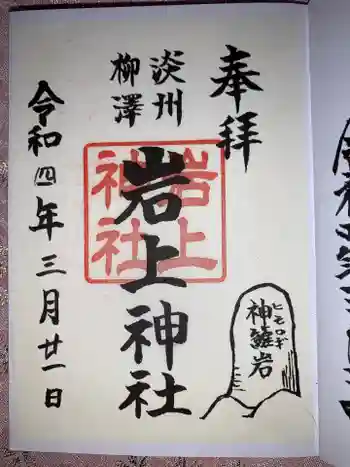 奉拝
淡州
柳澤
岩上神社
岩上
神社
令和四年三月廿一日
神籬岩
ヒモロギ